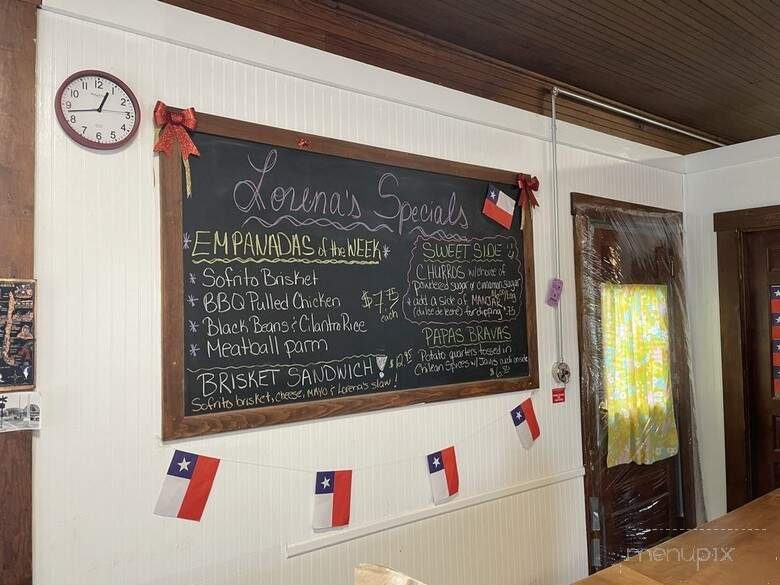 Lorena's Specials
EMPANADAS of the WEEK
* Sofrito Brisket
* BBQ Pulled Chicken
* Black Beans & Cilantro Rice
* Meatball parm
each
BRISKET SANDWICH!
Sofrito brisket, cheese, MAYO & Lorena's slaw!
SWEET SIDE
CHURROS w/choice of
powdered sugar or cinnamon sugar
add a side of MANJAR
(dulce de leche) for dipping
PAPAS BRAVAS
Potato quarters tossed in
Chilean Spices w/
12
1
2
3
4
5
6
7
8
9
10
11
menupix